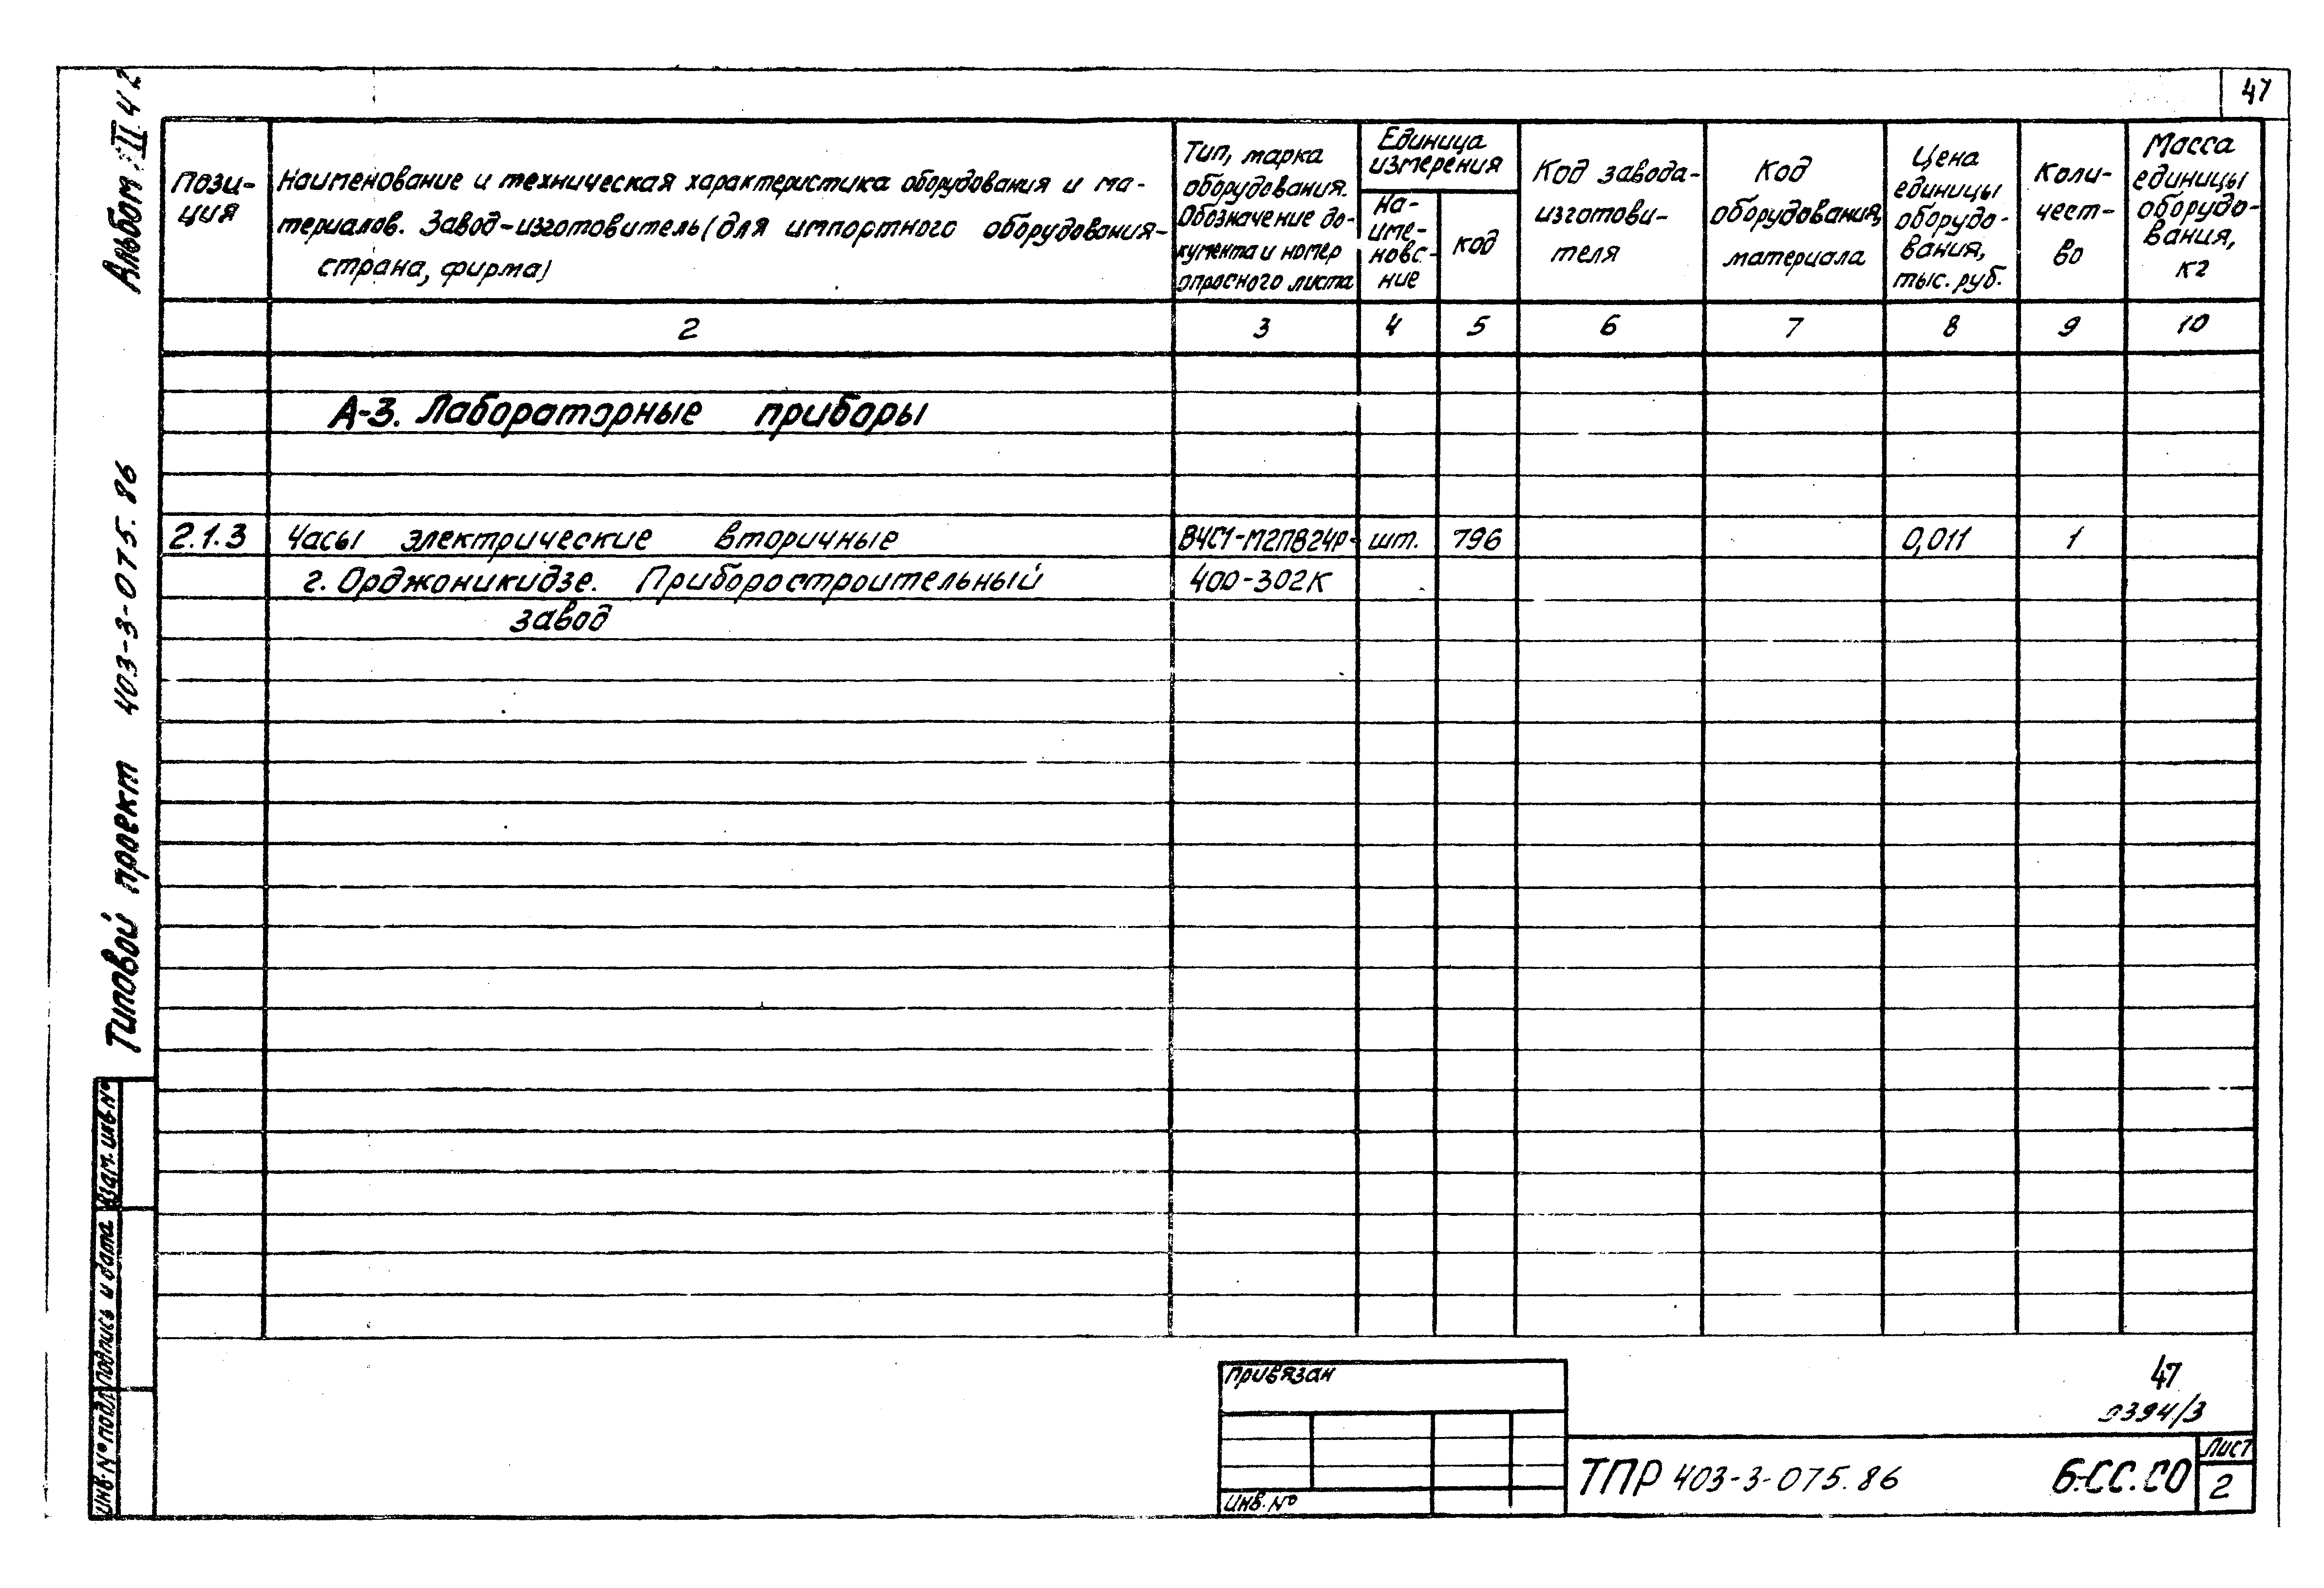 47
Альбом III ч 2
Типовой проект 403-3-075.86
Пози-
ция
Наименование и техническая характеристика оборудования и ма-
териалов. Завод-изготовитель (для импортного оборудования-
страна, фирма)
Тип, марка
оборудования.
Обозначение до-
кумента и номер
опросного листа
Единица
измерения
На-
име-
нова-
ние
код
Код завода-
изготови-
теля
Код
оборудования,
материала
Цена
единицы
оборудо-
вания,
тыс. руб.
Коли-
чест-
во
Масса
единицы
оборудо-
вания,
кг
2 3 4 5 6 7 8 9 10
А-3. Лабораторные приборы
2.1.3 Часы электрические вторичные ВЧС1-М2ПВ24Р- шт. 796 0,011 1
г. Орджоникидзе. Приборостроительный 400-302К
завод
Взам. инв. №
Подпись и дата
Инв. № подл.
Привязан
Инв. №
47
9394/3
ТПР 403-3-075.86 6-СС.СО
Лист
2